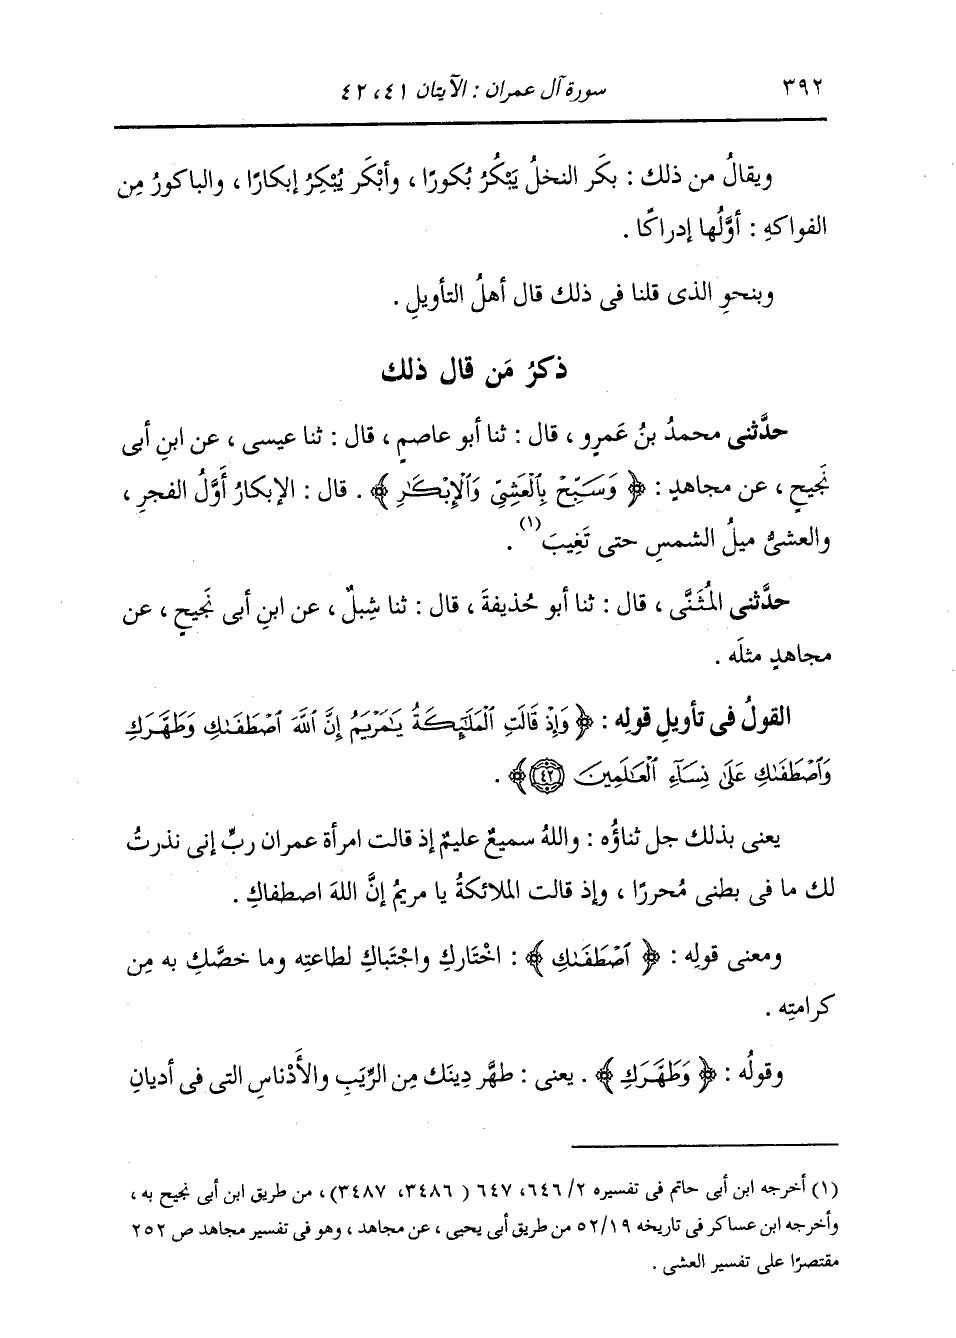 ٣٩٢ سورة آل عمران : الآيتان ٤١ ، ٤٢
ويقالُ من ذلك : بكَر النخلُ يَبْكُرُ بُكورًا ، وأبْكَر يُبْكِرُ إبكارًا ، والباكورُ مِن
الفواكهِ : أوَّلُها إدراكًا .
وبنحوِ الذى قلنا فى ذلك قال أهلُ التأويلِ .
ذكرُ مَن قال ذلك
حدَّثنى محمدُ بنُ عَمرٍو ، قال : ثنا أبو عاصمٍ ، قال : ثنا عيسى ، عن ابنِ أبى
نَجيحٍ ، عن مجاهدٍ : ﴿ وَسَبِّحْ بِٱلْعَشِىِّ وَٱلْإِبْكَـٰرِ ﴾ . قال : الإبكارُ أوَّلُ الفجرِ ،
والعشىُّ ميلُ الشمسِ حتى تَغِيبَ(١) .
حدَّثنى المُثَنَّى ، قال : ثنا أبو حُذيفةَ ، قال : ثنا شِبلٌ ، عن ابنِ أبى نَجيحٍ ، عن
مجاهدٍ مثلَه .
القولُ فى تأويلِ قولِه : ﴿ وَإِذْ قَالَتِ ٱلْمَلَـٰٓئِكَةُ يَـٰمَرْيَمُ إِنَّ ٱللَّهَ ٱصْطَفَىٰكِ وَطَهَّرَكِ
وَٱصْطَفَىٰكِ عَلَىٰ نِسَآءِ ٱلْعَـٰلَمِينَ ٤٢ ﴾ .
يعنى بذلك جل ثناؤُه : واللهُ سميعٌ عليمٌ إذ قالت امرأة عمران ربِّ إنى نذرتُ
لك ما فى بطنى مُحررًا ، وإذ قالت الملائكةُ يا مريمُ إنَّ اللهَ اصطفاكِ .
ومعنى قولِه : ﴿ ٱصْطَفَىٰكِ ﴾ : اخْتَاركِ واجْتَباكِ لطاعتِه وما خصَّكِ به مِن
كرامتِه .
وقولُه : ﴿ وَطَهَّرَكِ ﴾ . يعنى : طهَّر دِينَك مِن الرِّيَبِ والأَدْناسِ التى فى أديانِ
(١) أخرجه ابن أبى حاتم فى تفسيره ٢/ ٦٤٦، ٦٤٧ ( ٣٤٨٦، ٣٤٨٧)، من طريق ابن أبى نجيح به ،
وأخرجه ابن عساكر فى تاريخه ١٩/ ٥٢ من طريق أبى يحيى ، عن مجاهد ، وهو فى تفسير مجاهد ص ٢٥٢
مقتصرًا على تفسير العشى .